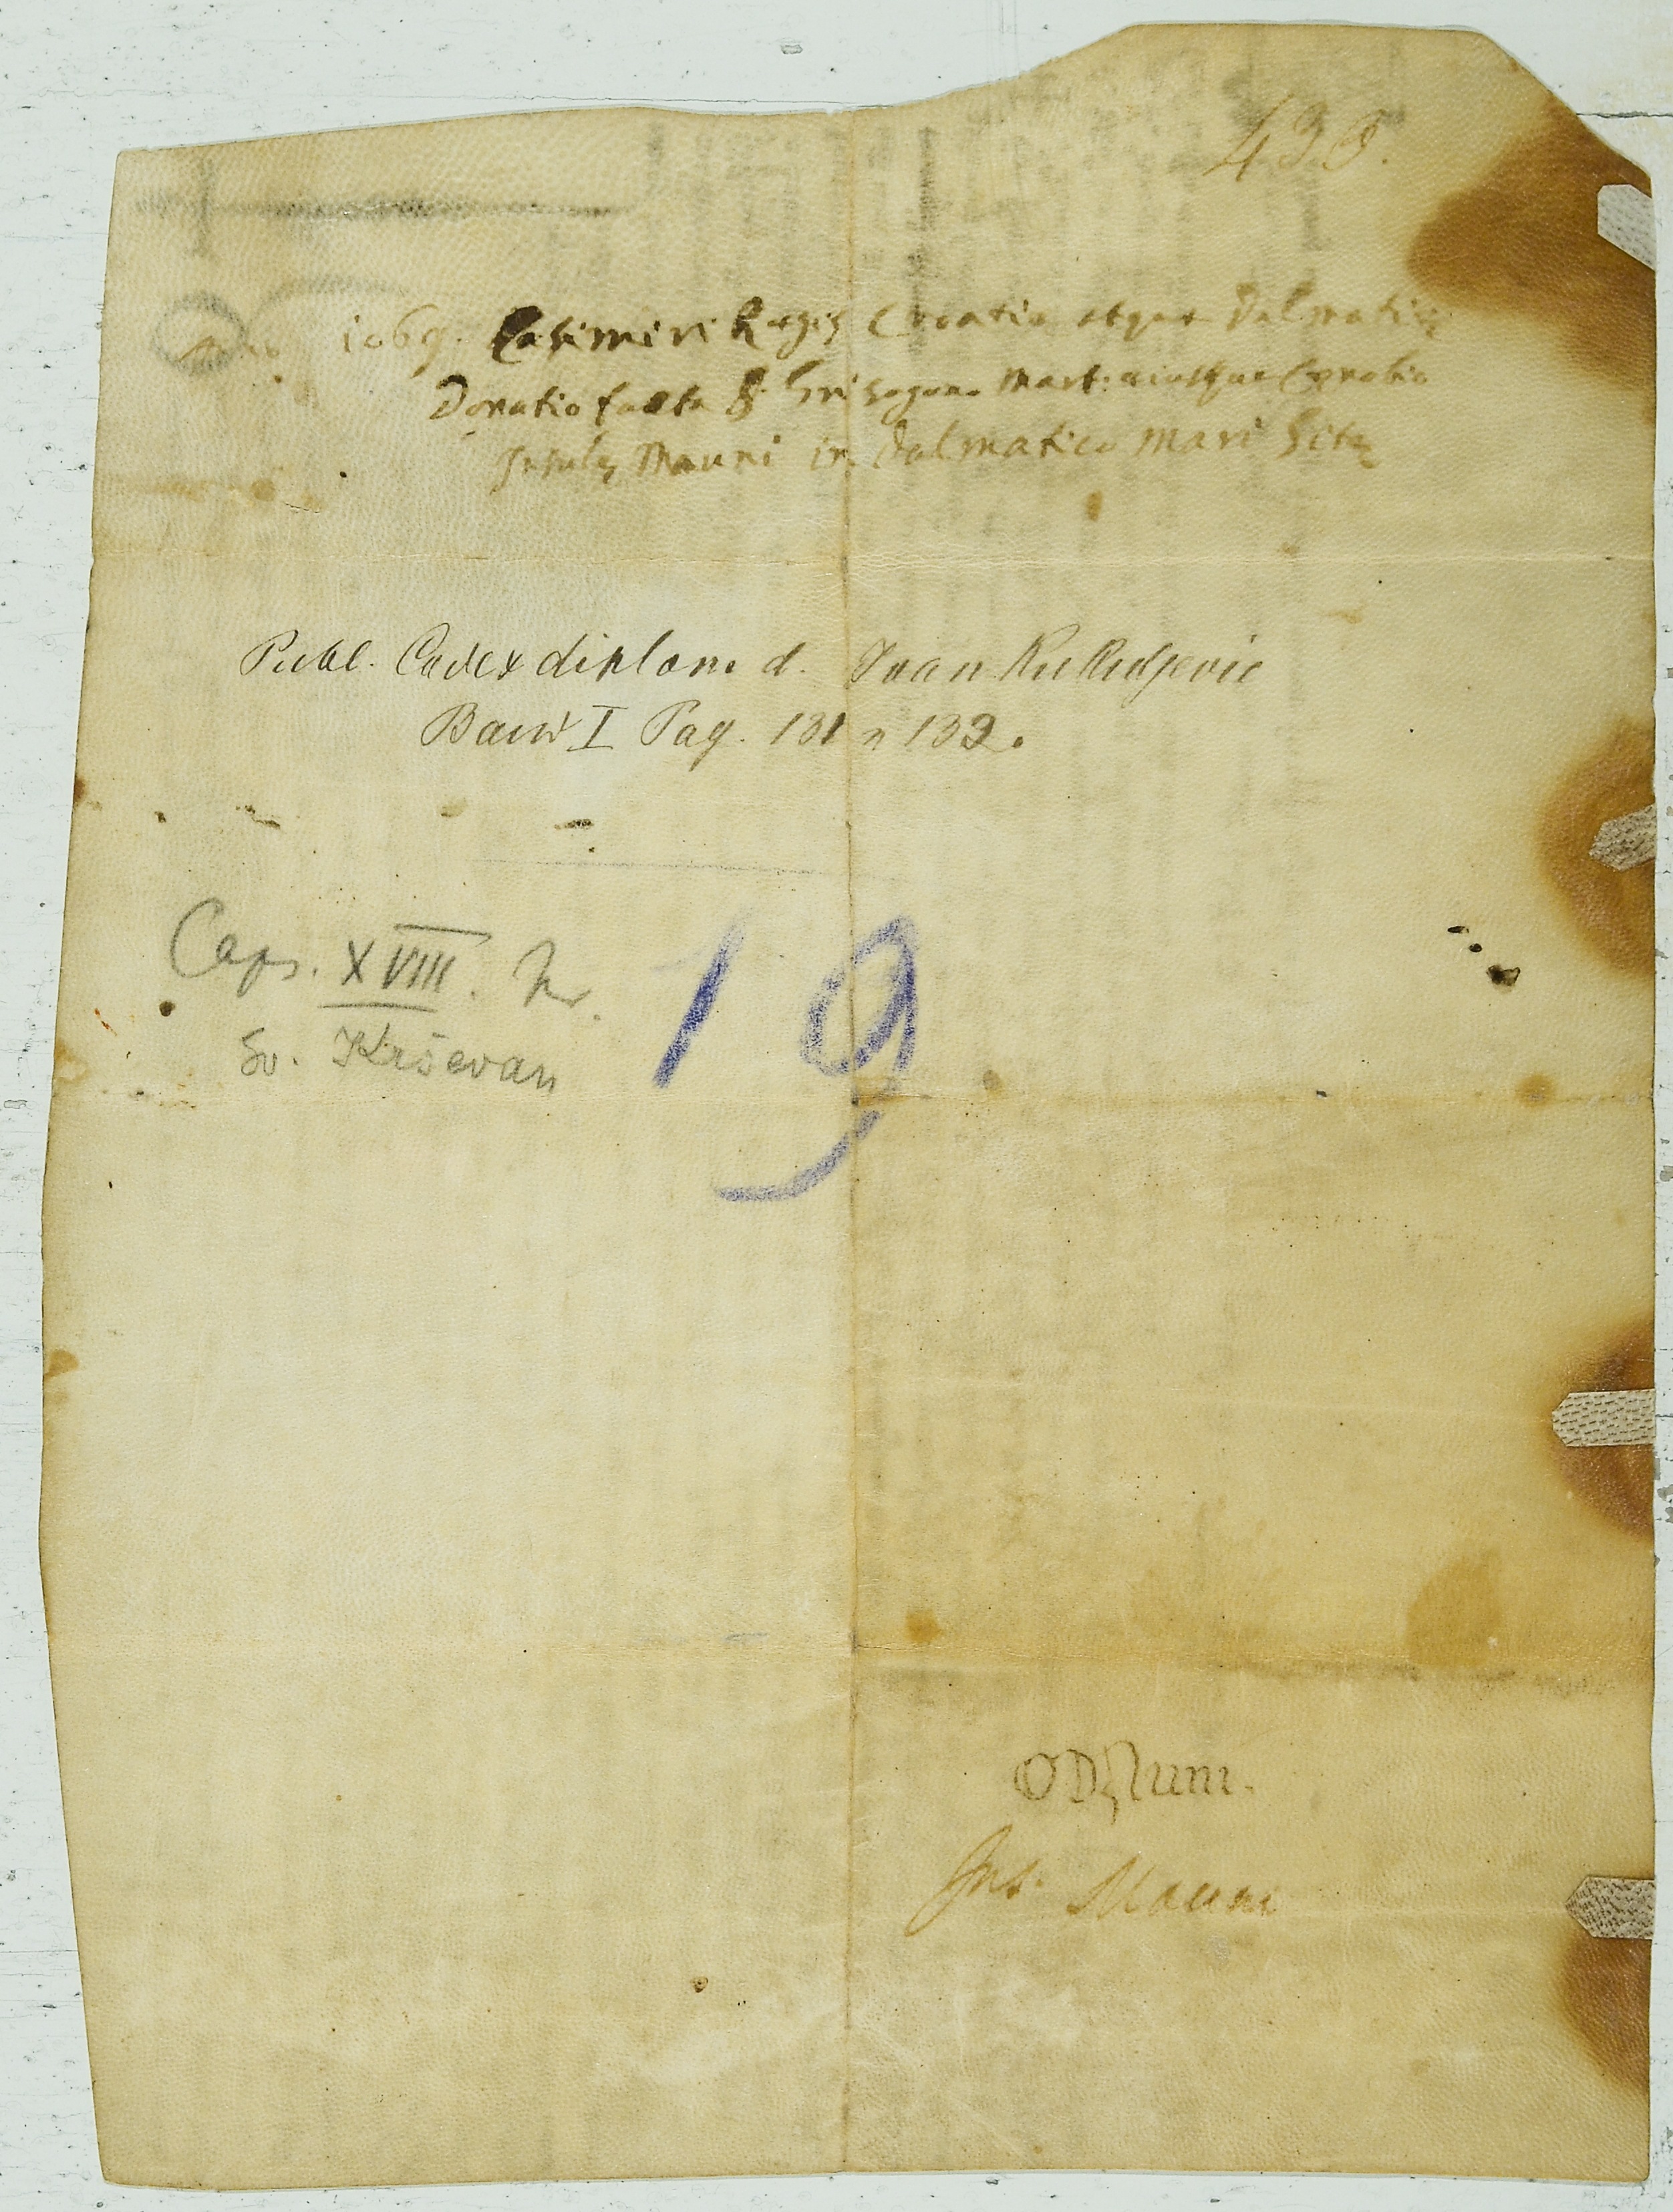 430.
Anno 1069. Casimiri Regis Croatiæ atque Dalmatiæ
Donatio facta S. Grisogono Mart: eiusque Cænobio
Insulę Mauni in Dalmatico Mari Sitę
Publ. Codex diplom. d. Ivan Kukuljevic
Band I Pag. 131 n 132.
Caps. XVIII. Nr. 19
Sv. Krševan
Ins. Mauni